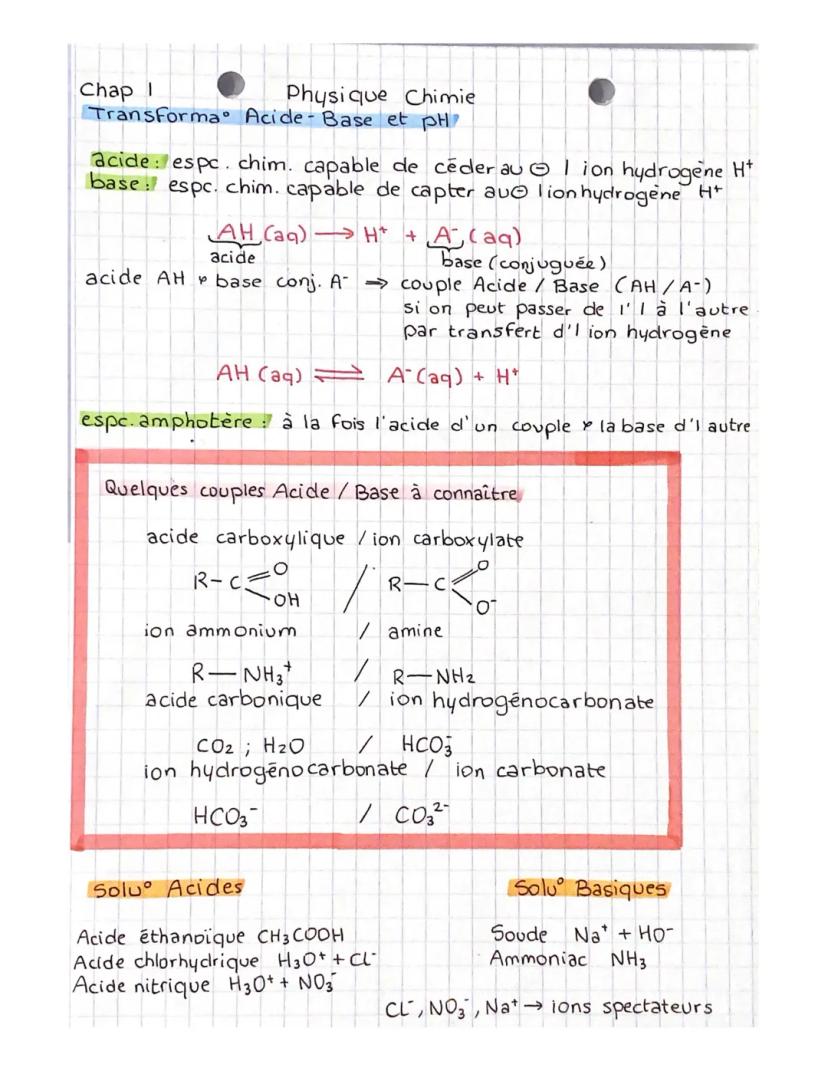 Chap 1 Physique Chimie
Transforma° Acide-Base et pH
acide : espc. chim. capable de céder au ⊖ 1 ion hydrogène H⁺
base : espc. chim. capable de capter au ⊖ 1 ion hydrogène H⁺
AH (aq) → H⁺ + A⁻ (aq)
acide base (conjuguée)
acide AH & base conj. A⁻ ⇒ couple Acide / Base (AH / A⁻)
si on peut passer de l'1 à l'autre
par transfert d'1 ion hydrogène
AH (aq) ⇌ A⁻(aq) + H⁺
espc. amphotère : à la fois l'acide d'un couple & la base d'1 autre
Quelques couples Acide / Base à connaître
acide carboxylique / ion carboxylate
R-C=O OH / R-C=O O⁻
ion ammonium / amine
R-NH₃⁺ / R-NH₂
acide carbonique / ion hydrogénocarbonate
CO₂ ; H₂O / HCO₃⁻
ion hydrogénocarbonate / ion carbonate
HCO₃⁻ / CO₃²⁻
Solu° Acides Solu° Basiques
Acide éthanoïque CH₃COOH Soude Na⁺ + HO⁻
Acide chlorhydrique H₃O⁺ + Cl⁻ Ammoniac NH₃
Acide nitrique H₃O⁺ + NO₃⁻
Cl⁻, NO₃⁻, Na⁺ → ions spectateurs